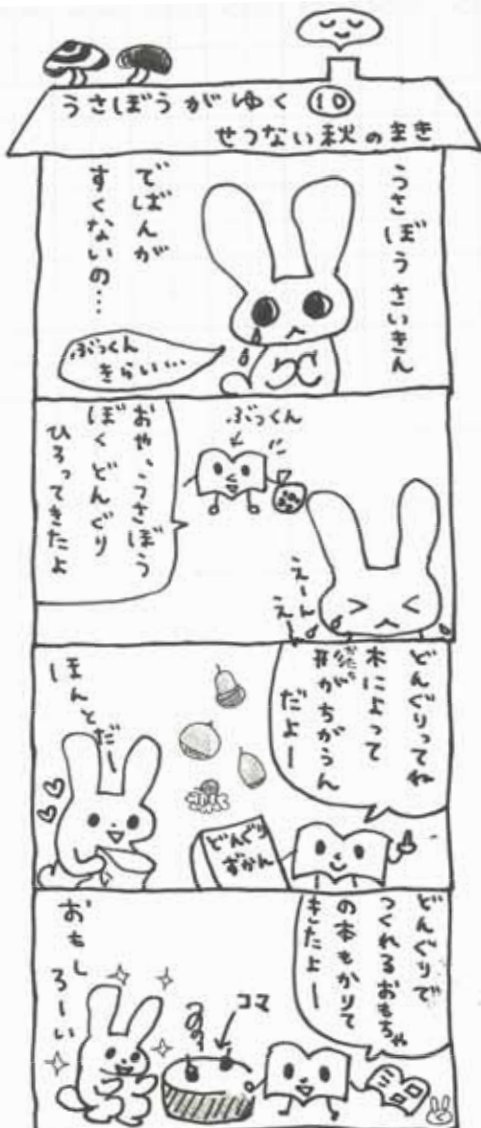 うさぼうがゆく⑩
せつない秋のまき
うさぼうさいきん
でばんが
すくないの…
ぶっくん
きらい…
ぶっくん
おや、うさぼう
ぼくどんぐり
ひろってきたよ
えーん
えー
どんぐりってね
木によって
形がちがうん
だよー
かたち
ほんとだー
どんぐり
ずかん
どんぐりで
つくれるおもちゃ
の本もかりて
きたよー
コマ
おもし
ろーい